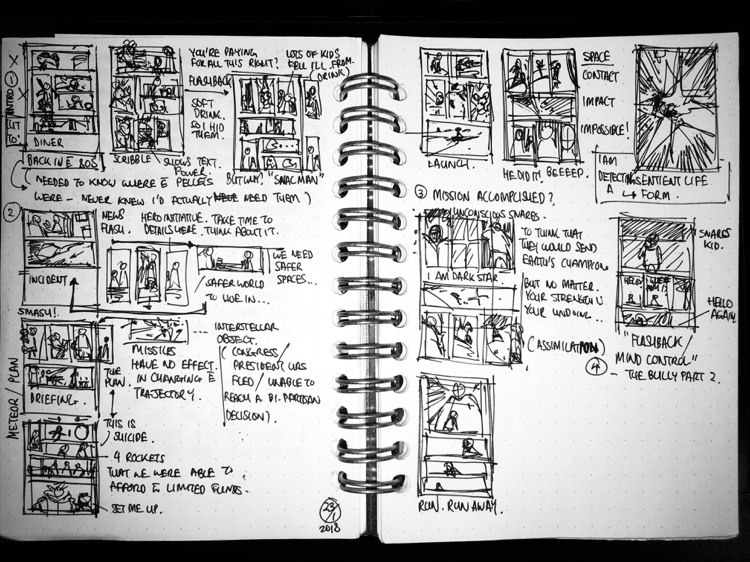 X
X
INTRO ①
SET
TO
YOU'RE PAYING
FOR ALL THIS RIGHT?
FLASHBACK
SOFT
DRINK
SO I HID
THEM.
LOTS OF KIDS
FELL ILL FROM
(DRINK)
DINER
BACK IN 80S
SCRIBBLE
SLOWS TEXT.
POWER.
BUT WHY? "SNACMAN"
NEEDED TO KNOW WHERE PELLETS
WERE - NEVER KNEW I'D ACTUALLY NEED THEM)
②
NEWS
FLASH.
HERO INITIATIVE. TAKE TIME TO
DETAILS HERE. THINK ABOUT IT.
INCIDENT
WE NEED
SAFER
SPACES...
SAFER WORLD
TO LIVE IN...
SMASH!
METEOR PLAN
BRIEFING.
THE
PLAN.
MISSILES
HAVE NO EFFECT.
IN CHANGING
TRAJECTORY.
INTERSTELLAR
OBJECT.
(CONGRESS/
PRESIDENT HAS
FLED/UNABLE TO
REACH A BI-PARTISAN
DECISION).
THIS IS
SUICIDE.
4 ROCKETS
THAT WE WERE ABLE TO
AFFORD LIMITED FUNDS.
SET ME UP.
23/1
2018
LAUNCH.
HE DID IT! BEEEEP.
SPACE
CONTACT
IMPACT
IMPOSSIBLE!
I AM
DETECTING
A SENTIENT LIFE
FORM.
③ MISSION ACCOMPLISHED?
UNCONSCIOUS SNARBS.
I AM DARK STAR.
TO THINK THAT
THEY WOULD SEND
EARTH'S CHAMPION
BUT NO MATTER.
YOUR STRENGTH IS
YOUR UNDOING...
(ASSIMILATION)
RUN. RUN AWAY.
SNARBS
KID.
HELLO
HELLO
AGAIN
"FLASHBACK/
MIND CONTROL"
④
- THE BULLY PART 2.